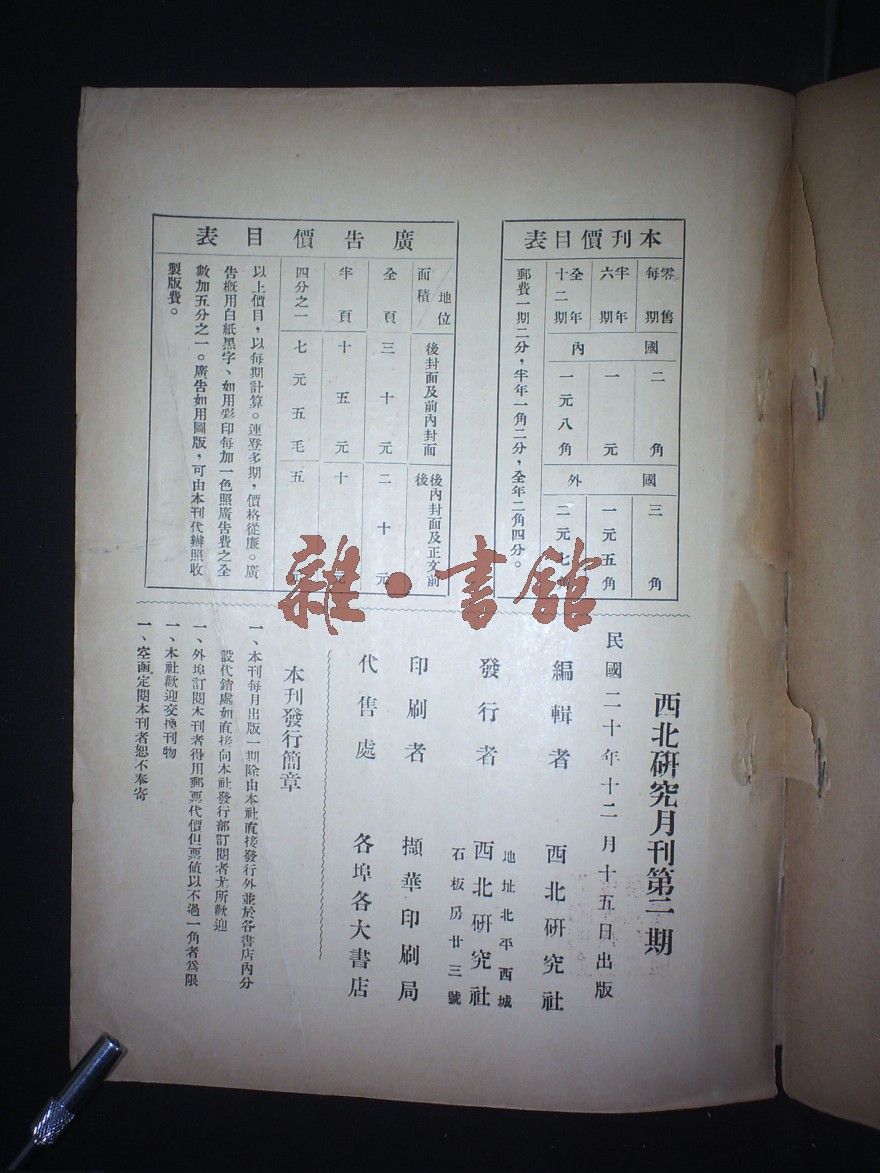 本刊價目表
零售每期
半年六期
全年十二期
國內
二角
一元
一元八角
國外
三角
一元五角
二元七角
郵費一期二分，半年一角二分，全年二角四分。
廣告價目表
地位
面積
全頁
半頁
四分之一
後封面及前內封面
三十元
十五元
七元五毛
後內封面及正文前後
二十元
十元
五
以上價目，以每期計算。連登多期，價格從廉。廣
告概用白紙黑字、如用彩印每加一色照廣告費之全
數加五分之一。廣告如用圖版，可由本刊代辦照收
製版費。
西北研究月刊第二期
民國二十年十二月十五日出版
編輯者 西北研究社
發行者 西北研究社
地址北平西城
石板房廿三號
印刷者 擷華印刷局
代售處 各埠各大書店
本刊發行簡章
一、本刊每月出版一期除由本社直接發行外並於各書店內分
設代銷處如直接向本社發行部訂閱者尤所歡迎
一、外埠訂閱本刊者得用郵票代價但票値以不過一角者爲限
一、本社歡迎交換刊物
一、空函定閱本刊者恕不奉寄
雜·書館